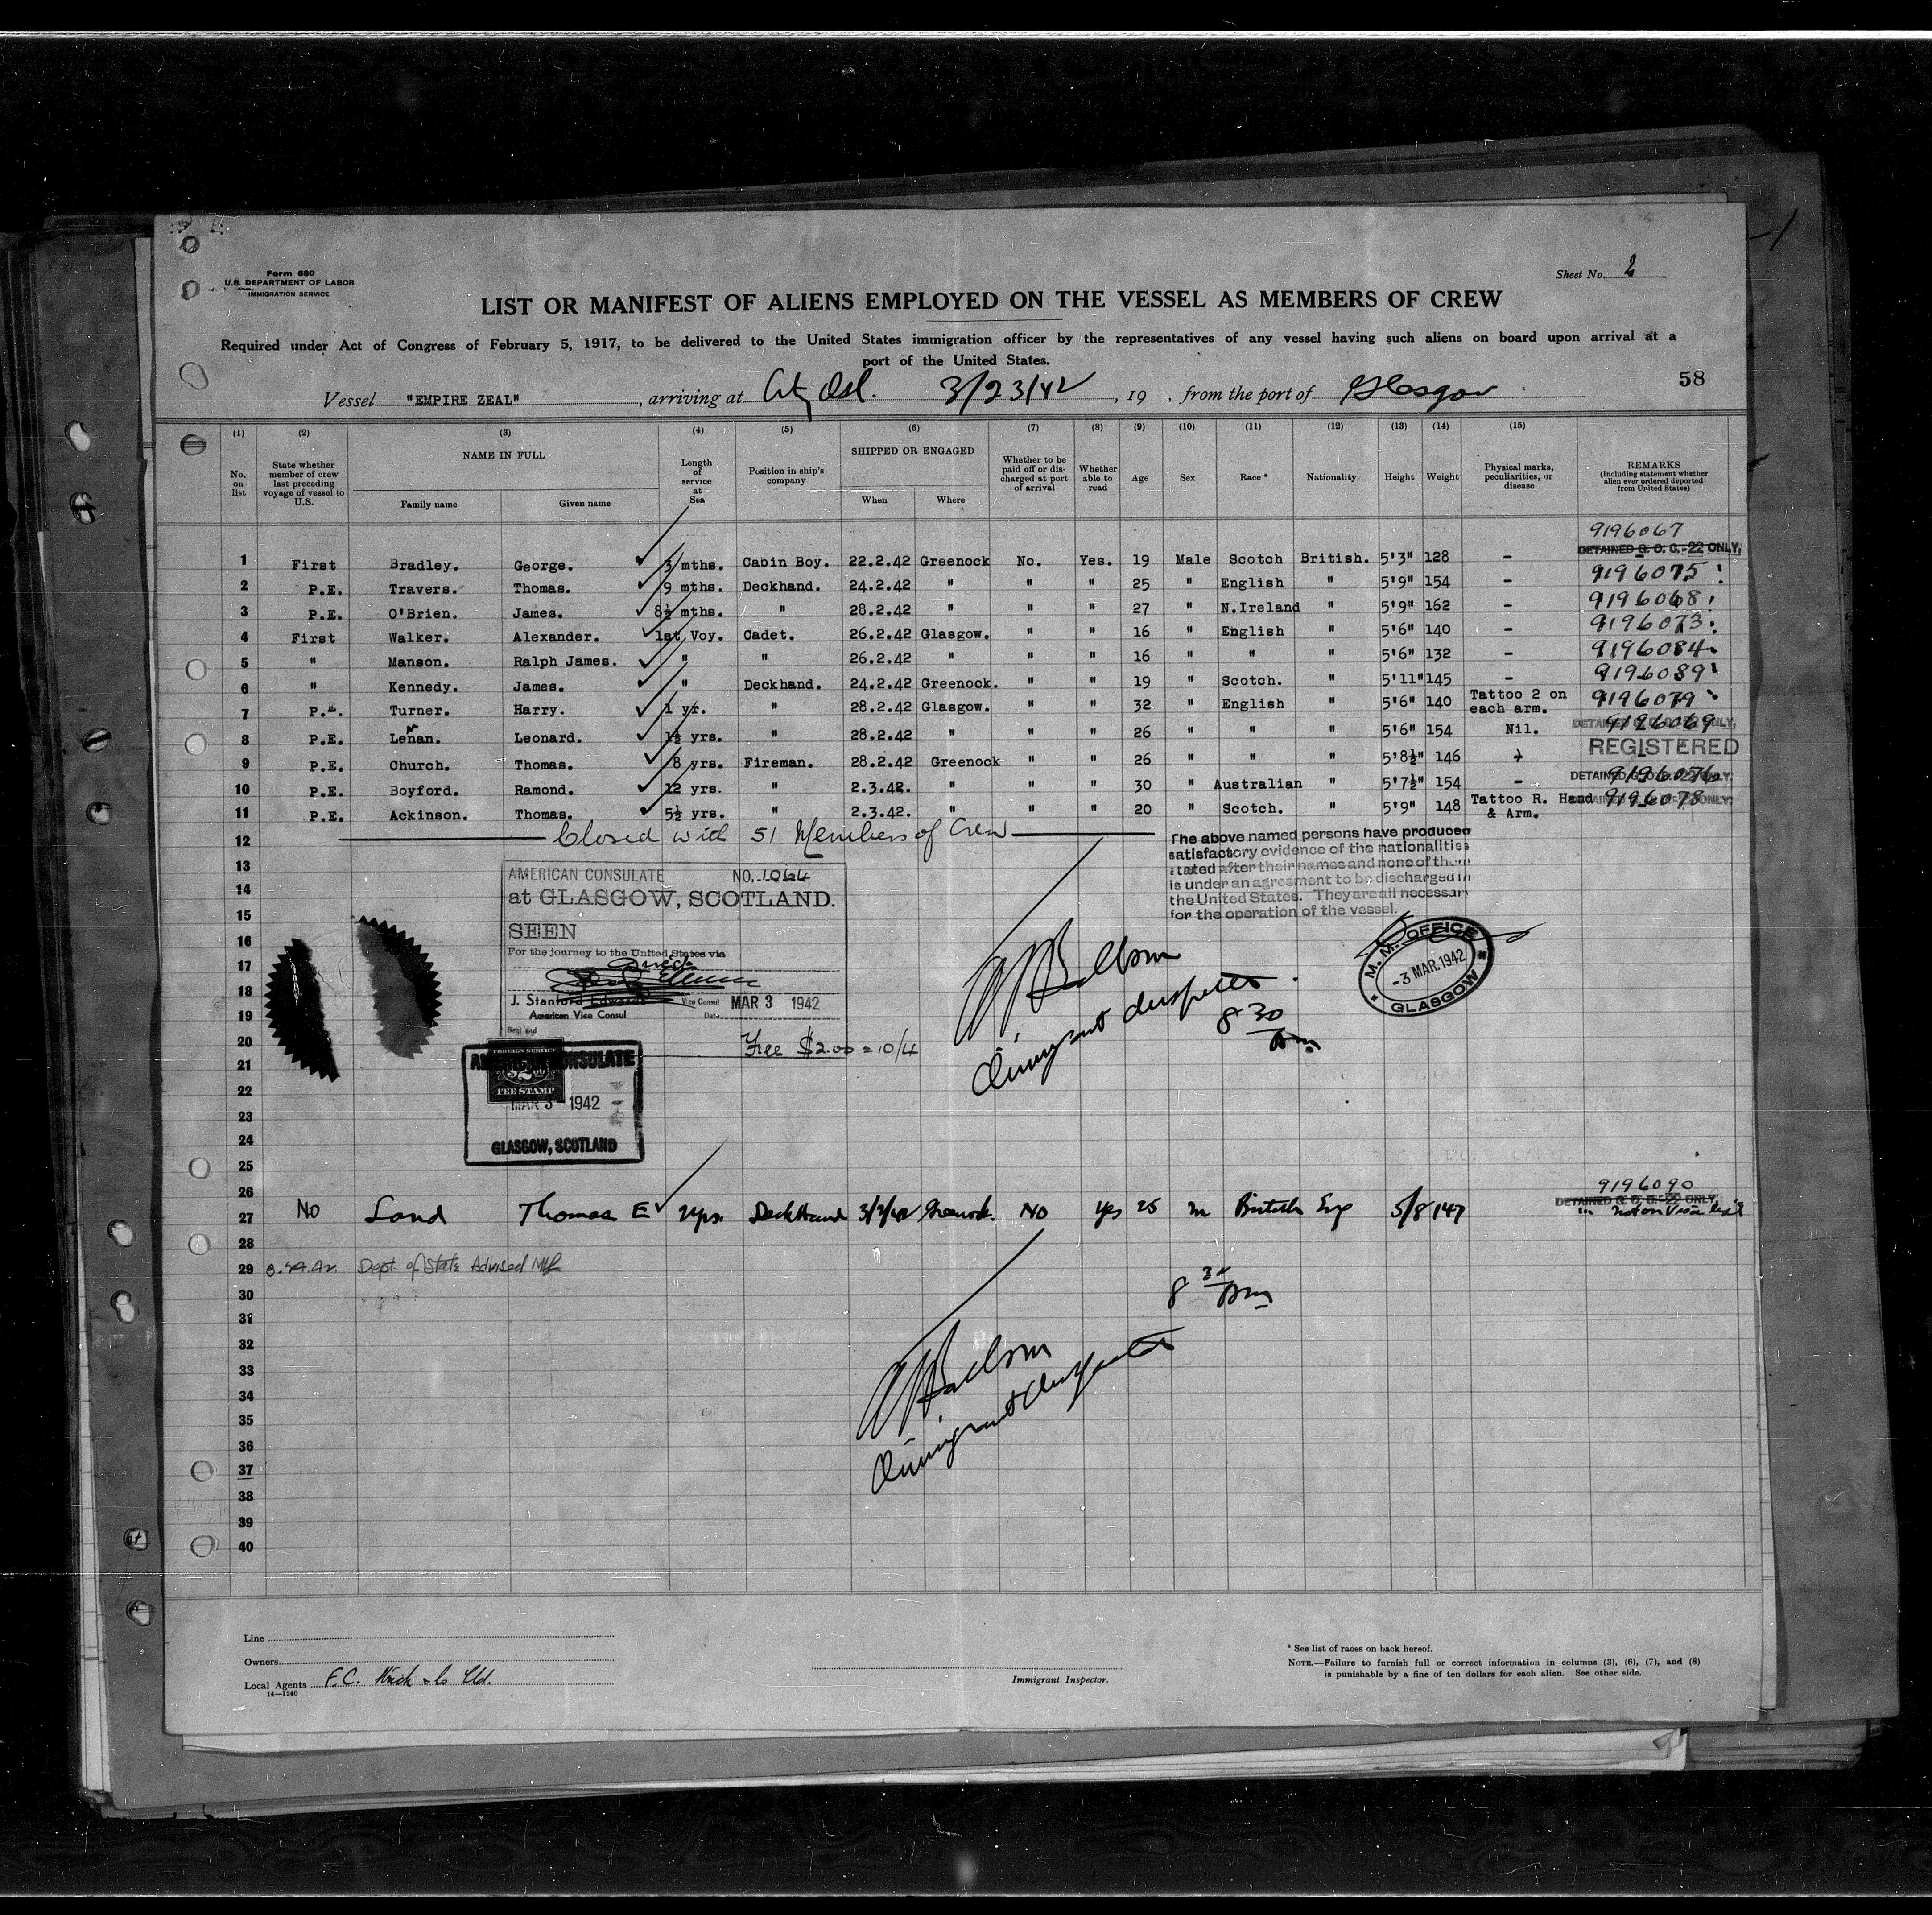 Form 680
U.S. DEPARTMENT OF LABOR
IMMIGRATION SERVICE
Sheet No. 2
LIST OR MANIFEST OF ALIENS EMPLOYED ON THE VESSEL AS MEMBERS OF CREW
Required under Act of Congress of February 5, 1917, to be delivered to the United States immigration officer by the representatives of any vessel having such aliens on board upon arrival at a
port of the United States.
58
Vessel "EMPIRE ZEAL", arriving at 3/23/42, 19 , from the port of Glasgow
(1) (2) (3) (4) (5) (6) (7) (8) (9) (10) (11) (12) (13) (14) (15)
No. on list State whether member of crew last preceding voyage of vessel to U.S. NAME IN FULL Family name Given name Length of service at Sea Position in ship's company SHIPPED OR ENGAGED When Where Whether to be paid off or discharged at port of arrival Whether able to read Age Sex Race* Nationality Height Weight Physical marks, peculiarities, or disease REMARKS (Including statement whether alien ever ordered deported from United States)
9196067
DETAINED G. O. C.-22 ONLY,
1 First Bradley. George. 3 mths. Cabin Boy. 22.2.42 Greenock No. Yes. 19 Male Scotch British. 5'3" 128 -
2 P.E. Travers. Thomas. 9 mths. Deckhand. 24.2.42 " " " 25 " English " 5'9" 154 - 9196075
3 P.E. O'Brien. James. 8½ mths. " 28.2.42 " " " 27 " N.Ireland " 5'9" 162 - 9196068
4 First Walker. Alexander. 1st Voy. Cadet. 26.2.42 Glasgow. " " 16 " English " 5'6" 140 - 9196073
5 " Manson. Ralph James. " " 26.2.42 " " " 16 " " " 5'6" 132 - 9196084
6 " Kennedy. James. " Deckhand. 24.2.42 Greenock. " " 19 " Scotch. " 5'11" 145 - 9196089
7 P.E. Turner. Harry. 1 yr. " 28.2.42 Glasgow. " " 32 " English " 5'6" 140 Tattoo 2 on each arm. 9196079
8 P.E. Lenan. Leonard. 1½ yrs. " 28.2.42 " " " 26 " " " 5'6" 154 Nil. 9196069
REGISTERED
9 P.E. Church. Thomas. 8 yrs. Fireman. 28.2.42 Greenock " " 26 " " " 5'8½" 146
10 P.E. Boyford. Ramond. 12 yrs. " 2.3.42. " " " 30 " Australian " 5'7½" 154 - 9196076
11 P.E. Ackinson. Thomas. 5½ yrs. " 2.3.42. " " " 20 " Scotch. " 5'9" 148 Tattoo R. Hand & Arm. 9196078
12 Closed with 51 Members of Crew
The above named persons have produced
satisfactory evidence of the nationalities
stated after their names and none of them
is under an agreement to be discharged in
the United States. They are all necessary
for the operation of the vessel.
13
14
15
16
17
18
19
20
21
22
23
24
25
AMERICAN CONSULATE NO. 1064
at GLASGOW, SCOTLAND.
SEEN
For the journey to the United States via
direct
J. Stanford Edwards Vice Consul MAR 3 1942
American Vice Consul Date
Fee $2.00 = 10/4
Immigrant Inspector
8 30 Am
M. M. OFFICE
-3 MAR. 1942
GLASGOW
AMERICAN CONSULATE
FOREIGN SERVICE
$2.00
FEE STAMP
MAR 3 1942
GLASGOW, SCOTLAND
26 9196090
DETAINED G. O. C.-22 ONLY,
27 No Land Thomas E 2 yrs. Deckhand 3/3/42 Greenock. No Yes 25 m British Eng 5/8 147 not on Visa list
28
29 Dept. of State Advised
30
31
32
33
34
35
36
37
38
39
40
8 30 Am
Immigrant Inspector
Line
Owners
Local Agents F.C. & Co Ltd.
14—1240
Immigrant Inspector.
* See list of races on back hereof.
NOTE.—Failure to furnish full or correct information in columns (3), (6), (7), and (8)
is punishable by a fine of ten dollars for each alien. See other side.